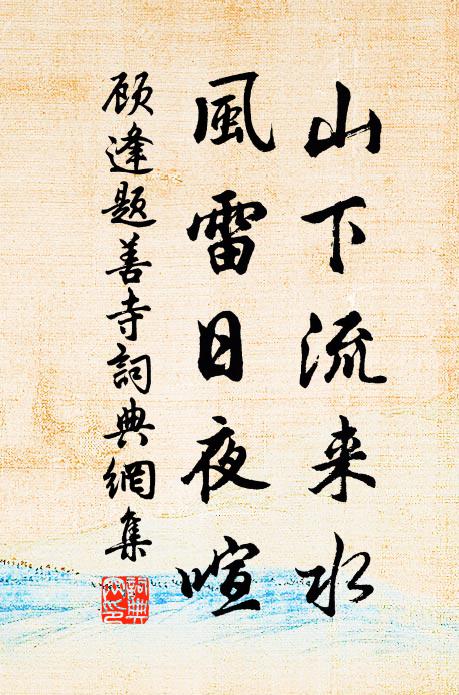 山下流来水
風雷日夜喧
顾逢题善寺詞典網集
詞典